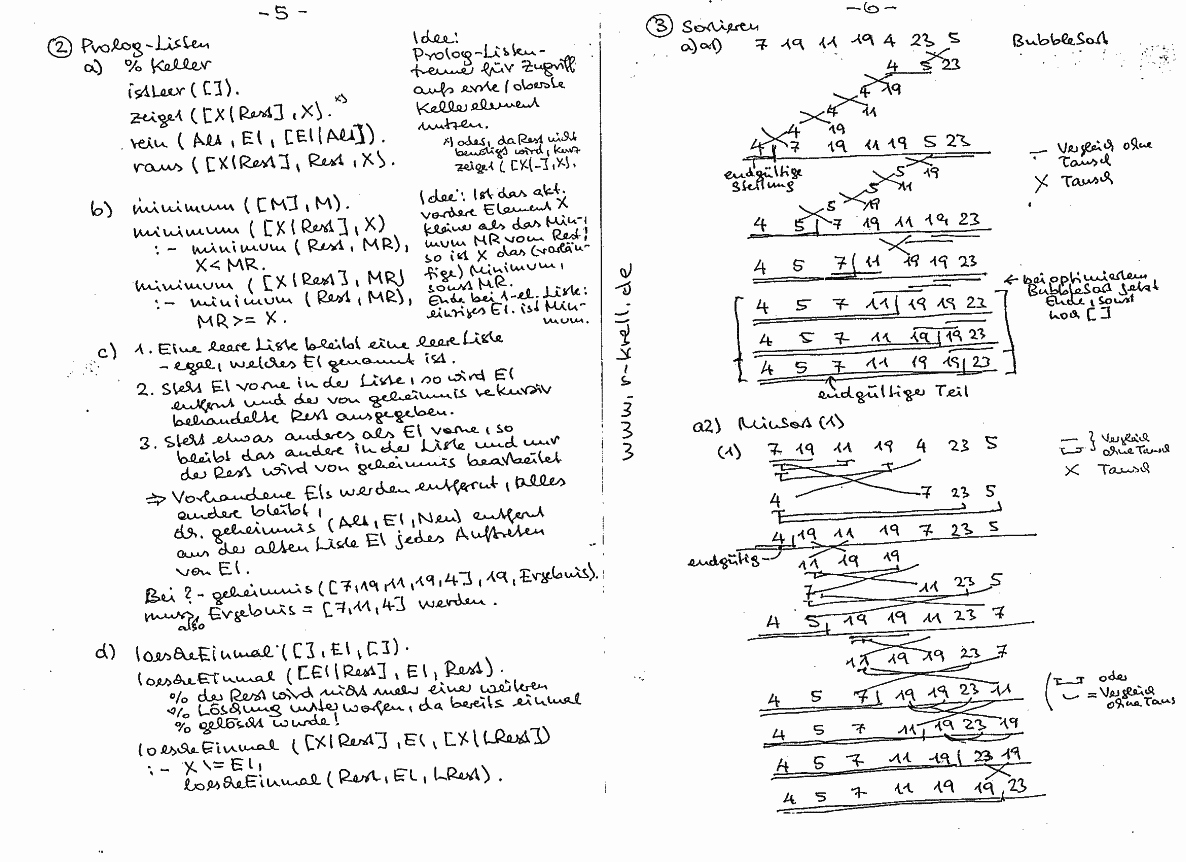 - 5 -
② Prolog-Listen
a) % Keller
istLeer ([]).
zeiget ([X|Rest], X). *)
rein (Alt, El, [El|Alt]).
raus ([X|Rest], Rest, X).
Idee:
Prolog-Listen-
trenner für Zugriff
aufs erste/oberste
Kellerelement
nutzen.
*) oder, da Rest nicht
benötigt wird, kurz
zeiget ([X|_], X).
b) minimum ([M], M).
minimum ([X|Rest], X)
:- minimum (Rest, MR),
X < MR.
minimum ([X|Rest], MR)
:- minimum (Rest, MR),
MR >= X.
Idee: Ist das akt.
vordere Element X
kleiner als das Mini-
mum MR vom Rest,
so ist X das (vorläu-
fige) Minimum,
sonst MR.
Ende bei 1-el. Liste:
einziges El. ist Min-
mum.
c) 1. Eine leere Liste bleibt eine leere Liste
- egal, welches El genannt ist.
2. Steht El vorne in der Liste, so wird El
entfernt und der von geheimnis rekursiv
behandelte Rest ausgegeben.
3. Steht etwas anderes als El vorne, so
bleibt das andere in der Liste und nur
der Rest wird von geheimnis bearbeitet
⇒ Vorhandene Els werden entfernt, alles
andere bleibt,
d.h. geheimnis (Alt, El, Neu) entfernt
aus der alten Liste El jedes Auftreten
von El.
Bei ?- geheimnis ([7,19,11,19,4], 19, Ergebnis).
muss also Ergebnis = [7,11,4] werden.
d) loescheEinmal ([], El, []).
loescheEinmal ([El|Rest], El, Rest).
% der Rest wird nicht mehr einer weiteren
% Löschung unterworfen, da bereits einmal
% gelöscht wurde!
loescheEinmal ([X|Rest], El, [X|LRest])
:- X \= El,
loescheEinmal (Rest, El, LRest).
www.r-krell.de
- 6 -
③ Sortieren
a) a1) 7 19 11 19 4 23 5 BubbleSort
4 5 23
4 19
4 11
4 19
4 7 19 11 19 5 23
endgültige
Stellung
— Vergleich ohne
Tausch
X Tausch
5 19
5 11
5 19
4 5 7 19 11 19 23
4 5 7 11 19 19 23
← bei optimiertem
BubbleSort jetzt
Ende, sonst
noch []
4 5 7 11 19 19 23
4 5 7 11 19 19 23
4 5 7 11 19 19 23
endgültiger Teil
a2) MinSort (1)
(1) 7 19 11 19 4 23 5
— } Vergleich
ohne Tausch
X Tausch
4 7 23 5
4 19 11 19 7 23 5
endgültig
11 19 19
7 11 23 5
4 5 19 19 11 23 7
11 19 19 23 7
4 5 7 19 19 23 11
( oder
= Vergleich
ohne Taus
4 5 7 11 19 23 19
4 5 7 11 19 23 19
4 5 7 11 19 19 23